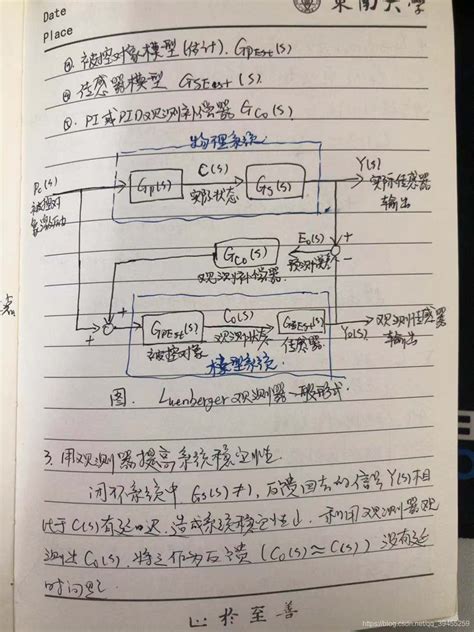 Date
Place
東南大學
③ 被控对象模型(估计). GPEst(s)
④ 传感器模型 GSEst(s)
⑤. PI或PID观测补偿器 GCo(s)
物理系统
Pc(s)
被控对
象激励
GP(s)
C(s)
实际状态
GS(s)
Y(s)
实际传感器
输出
GCo(s)
观测补偿器
Eo(s)
观测误差
+
-
+
+
GPEst(s)
被控对象
Co(s)
观测状态
GSEst(s)
传感器
Yo(s)
观测传感器
输出
模型系统
图. Luenberger观测器一般形式.
点
3. 用观测器提高系统稳定性.
闭环系统中, Gs(s)≠1, 反馈回去的信号Y(s)相
比于C(s)有延迟, 造成系统稳定性 利用观测器观
测出Co(s), 将之作为反馈(Co(s)≈C(s)) 没有延
时问题.
止於至善
https://blog.csdn.net/qq_39455259